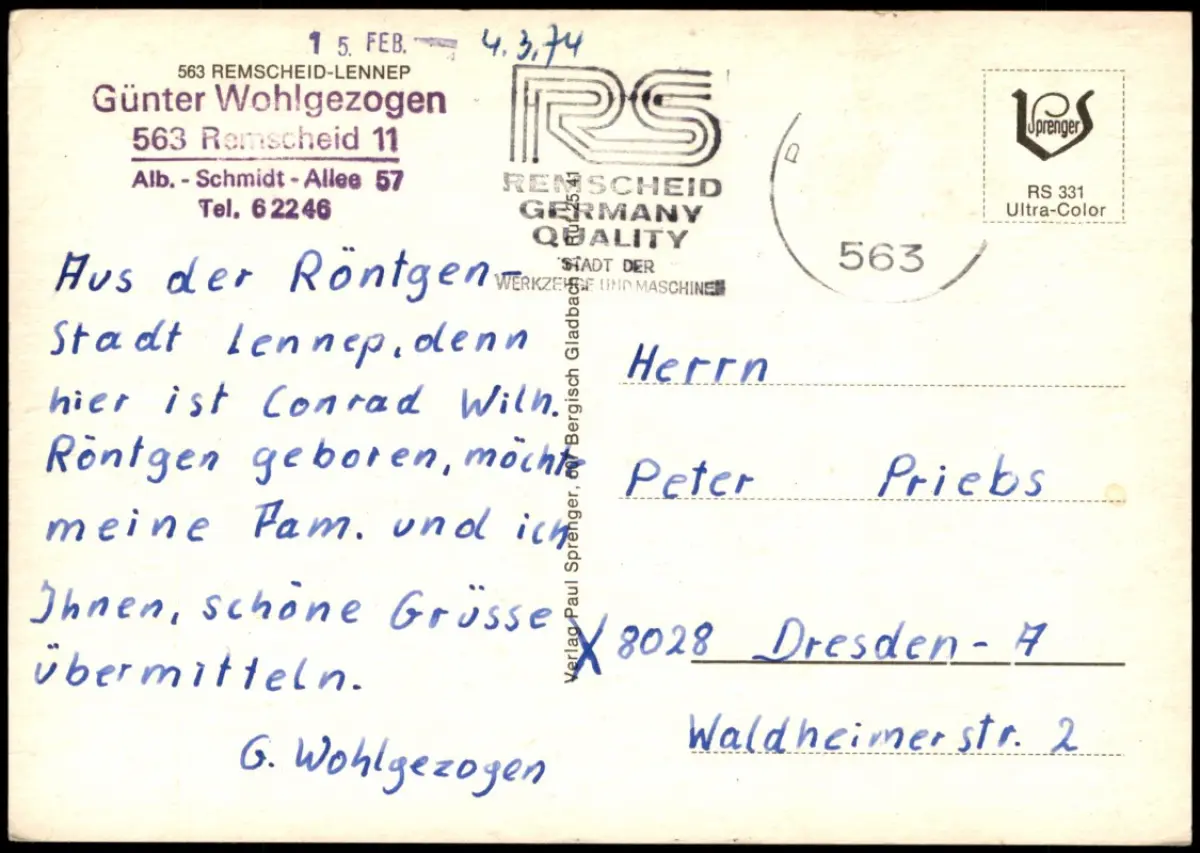 15. FEB.
4.3.74
563 REMSCHEID-LENNEP
Günter Wohlgezogen
563 Remscheid 11
Alb. - Schmidt - Allee 57
Tel. 62246
RS
REMSCHEID
GERMANY
QUALITY
STADT DER
WERKZEUGE UND MASCHINEN
563
Sprenger
RS 331
Ultra-Color
Aus der Röntgen-
Stadt Lennep, denn
hier ist Conrad Wilh.
Röntgen geboren, möchte
meine Fam. und ich
Ihnen, schöne Grüsse
übermitteln.
G. Wohlgezogen
Verlag Paul Sprenger, 507 Bergisch Gladbach, Ruf 25141
Herrn
Peter Priebs
X 8028 Dresden - A
Waldheimerstr. 2